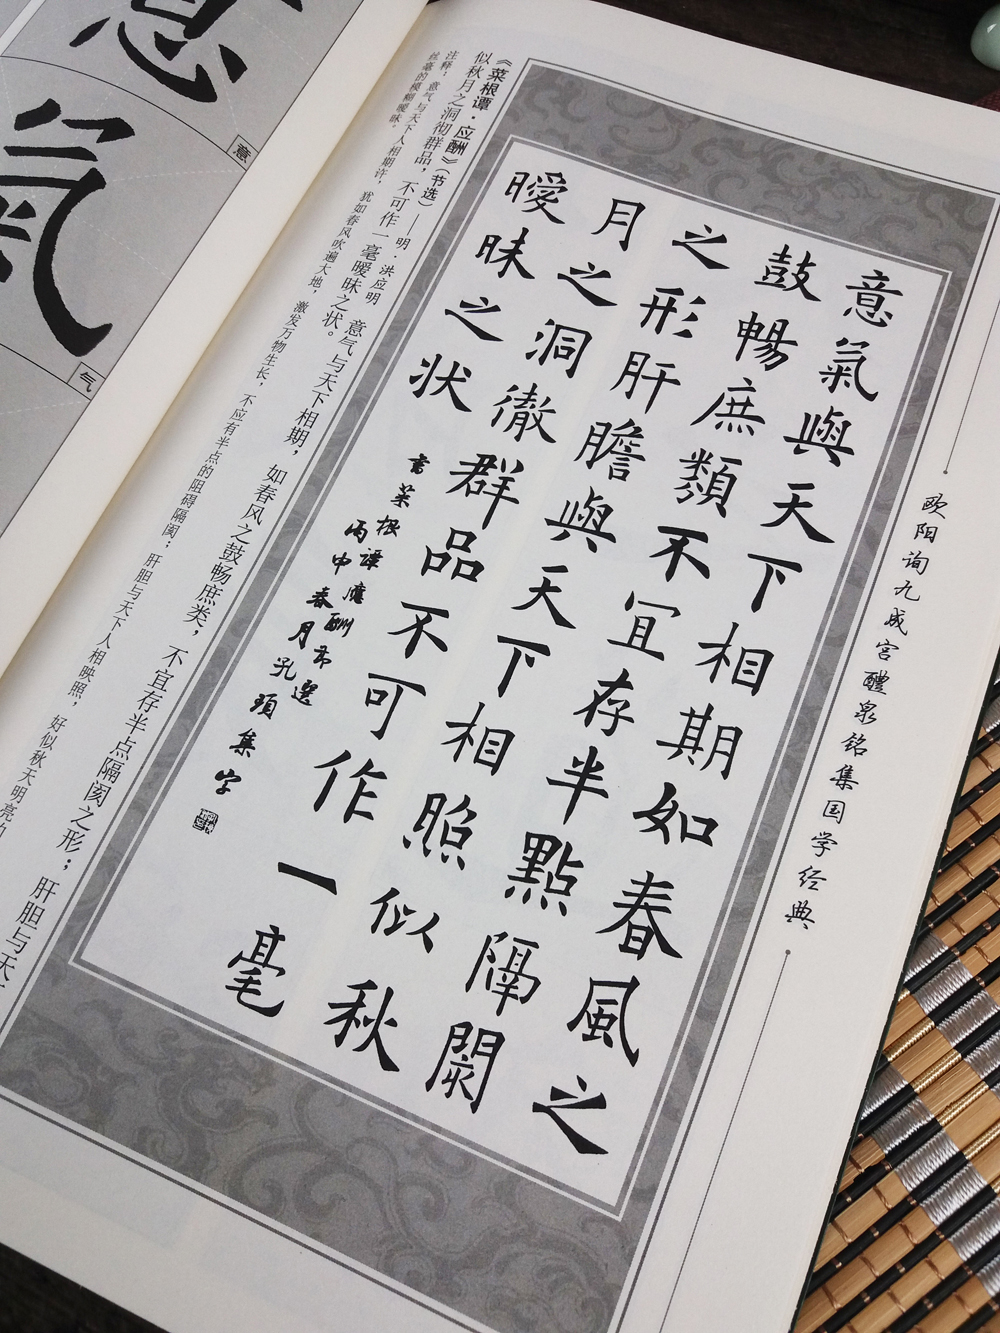 欧阳询九成宫醴泉铭集国学经典
意氣與天下相期如春風之
鼓暢庶類不宜存半點隔閡
之形肝膽與天下相照似秋
月之洞徹群品不可作一毫
曖昧之状
書菜根譚應酬節選
丙申春月孔頊集字
《菜根谭·应酬》(节选)——明·洪应明 意气与天下相期，如春风之鼓畅庶类，不宜存半点隔阂之形；肝胆与天
似秋月之洞彻群品，不可作一毫暧昧之状。
注释：意气与天下人相期许，犹如春风吹遍大地，激发万物生长，不应有半点的阻碍隔阂；肝胆与天下人相映照，好似秋天明亮
丝毫的模糊暧昧。
意
氣
意
气